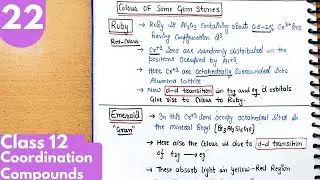 22
Class 12
Coordination
Compounds
Colour OF Some Gem Stones
Ruby
Red-Colour
→ Ruby is Al2O3 containing about 0.5-1% Cr3+ ions
having configuration d3.
→ Cr+3 ions are randomly distributed in the
positions occupied by Al+3
→ Here Cr+3 ions are octahedrally surrounded into
Alumina lattice
→ Now d-d transition in t2g and eg d orbitals
Give rise to Colour to Ruby.
Emerald
"Green"
→ In this Cr+3 ions occupy octahedral sites in
the mineral Beryl [Be3Al2Si6O18]
→ Here also the Colour is due to d-d transition
of t2g → eg
→ These absorb light in Yellow-Red Region